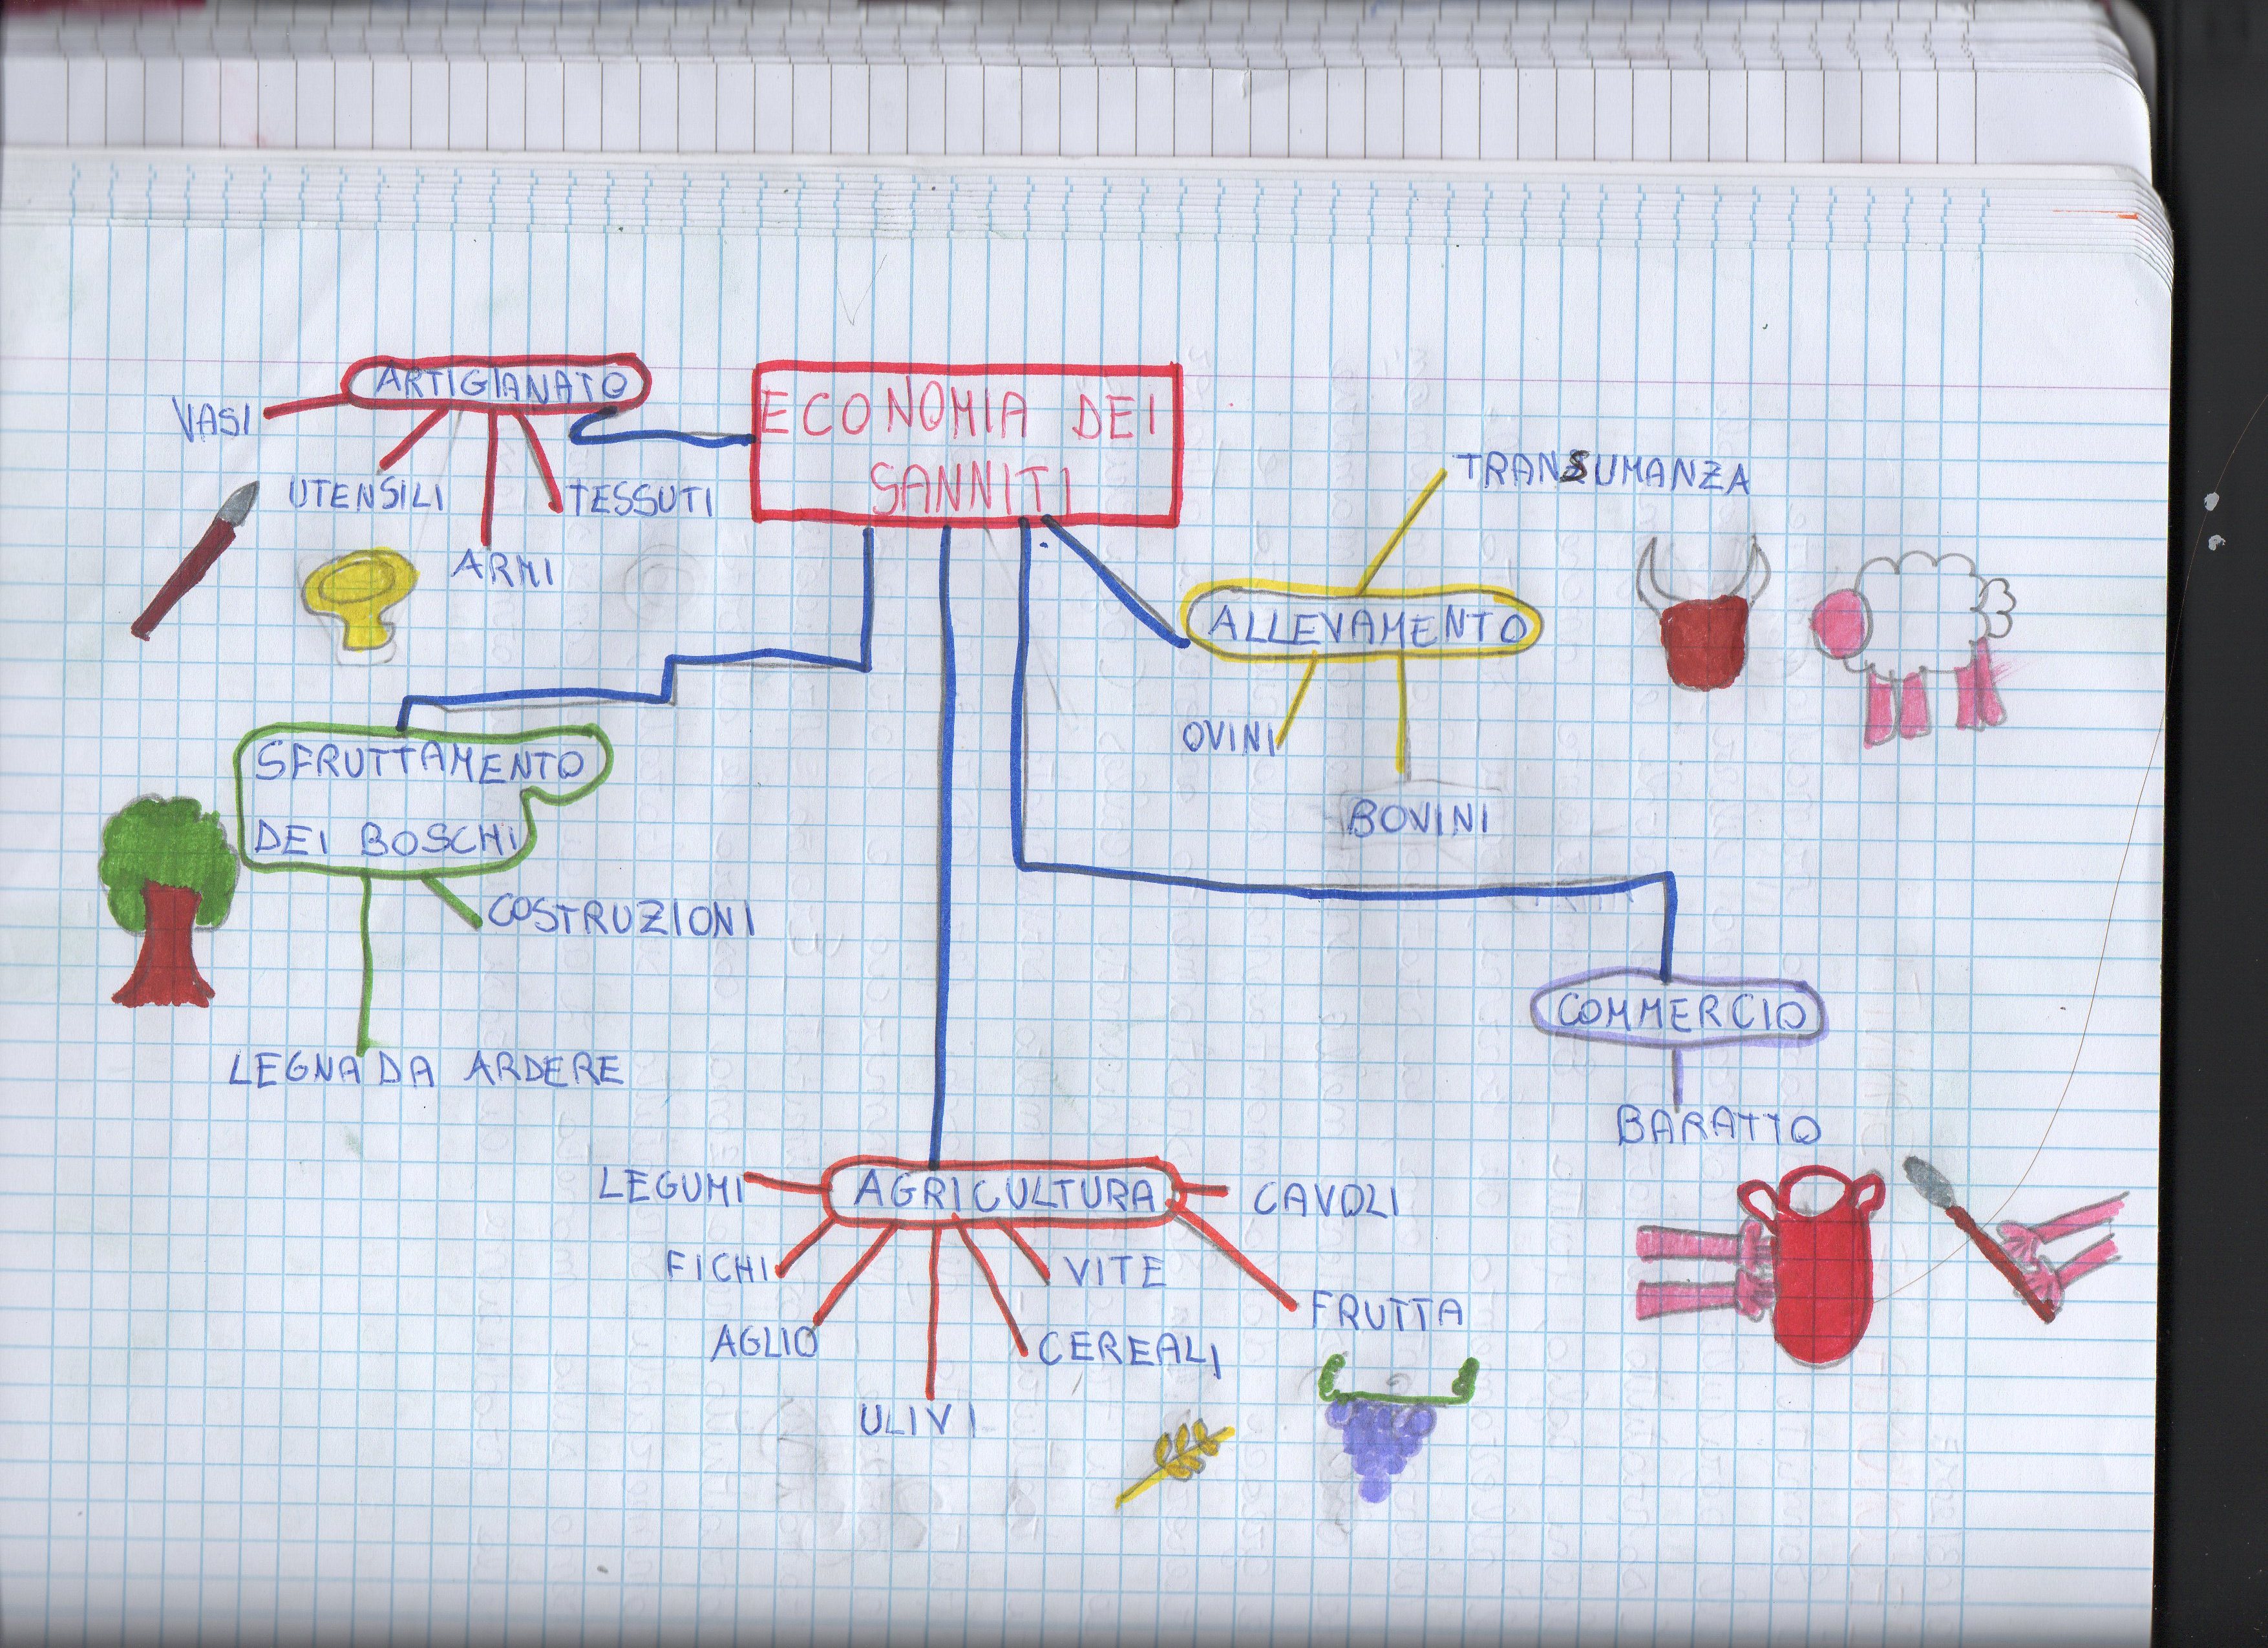 ECONOMIA DEI
SANNITI
ARTIGIANATO
VASI
UTENSILI
ARMI
TESSUTI
TRANSUMANZA
ALLEVAMENTO
OVINI
BOVINI
SFRUTTAMENTO
DEI BOSCHI
COSTRUZIONI
LEGNA DA ARDERE
COMMERCIO
BARATTO
AGRICULTURA
LEGUMI
FICHI
AGLIO
ULIVI
CEREALI
VITE
CAVOLI
FRUTTA